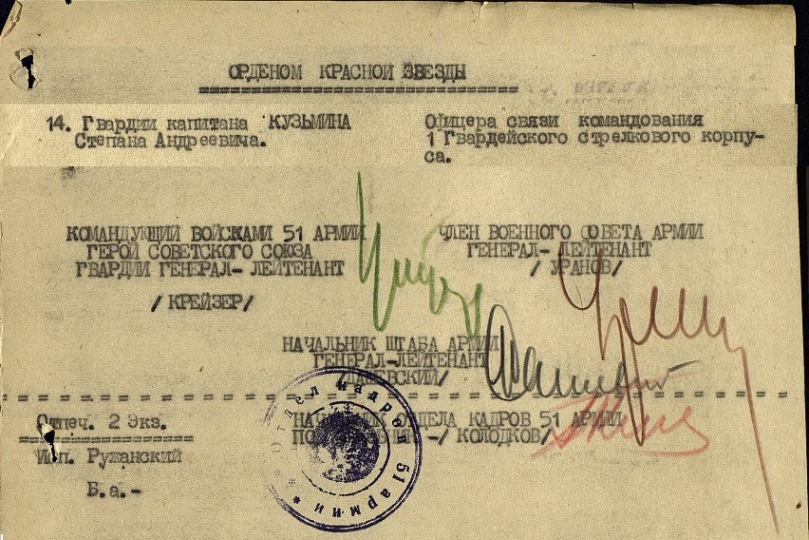 ОРДЕНОМ КРАСНОЙ ЗВЕЗДЫ
14. Гвардии капитана КУЗЬМИНА
Степана Андреевича.
Офицера связи командования
1 Гвардейского стрелкового корпу-
са.
КОМАНДУЮЩИЙ ВОЙСКАМИ 51 АРМИИ
ГЕРОЙ СОВЕТСКОГО СОЮЗА
ГВАРДИИ ГЕНЕРАЛ-ЛЕЙТЕНАНТ
/КРЕЙЗЕР/
ЧЛЕН ВОЕННОГО СОВЕТА АРМИИ
ГЕНЕРАЛ-ЛЕЙТЕНАНТ
/УРАНОВ/
НАЧАЛЬНИК ШТАБА АРМИИ
ГЕНЕРАЛ-ЛЕЙТЕНАНТ
/ДАШЕВСКИЙ/
Отпеч. 2 Экз.
Исп. Ружанский
Б.а.-
НАЧАЛЬНИК ОТДЕЛА КАДРОВ 51 АРМИИ
-/КОЛОДКОВ/
* Отдел кадров 51 армии *